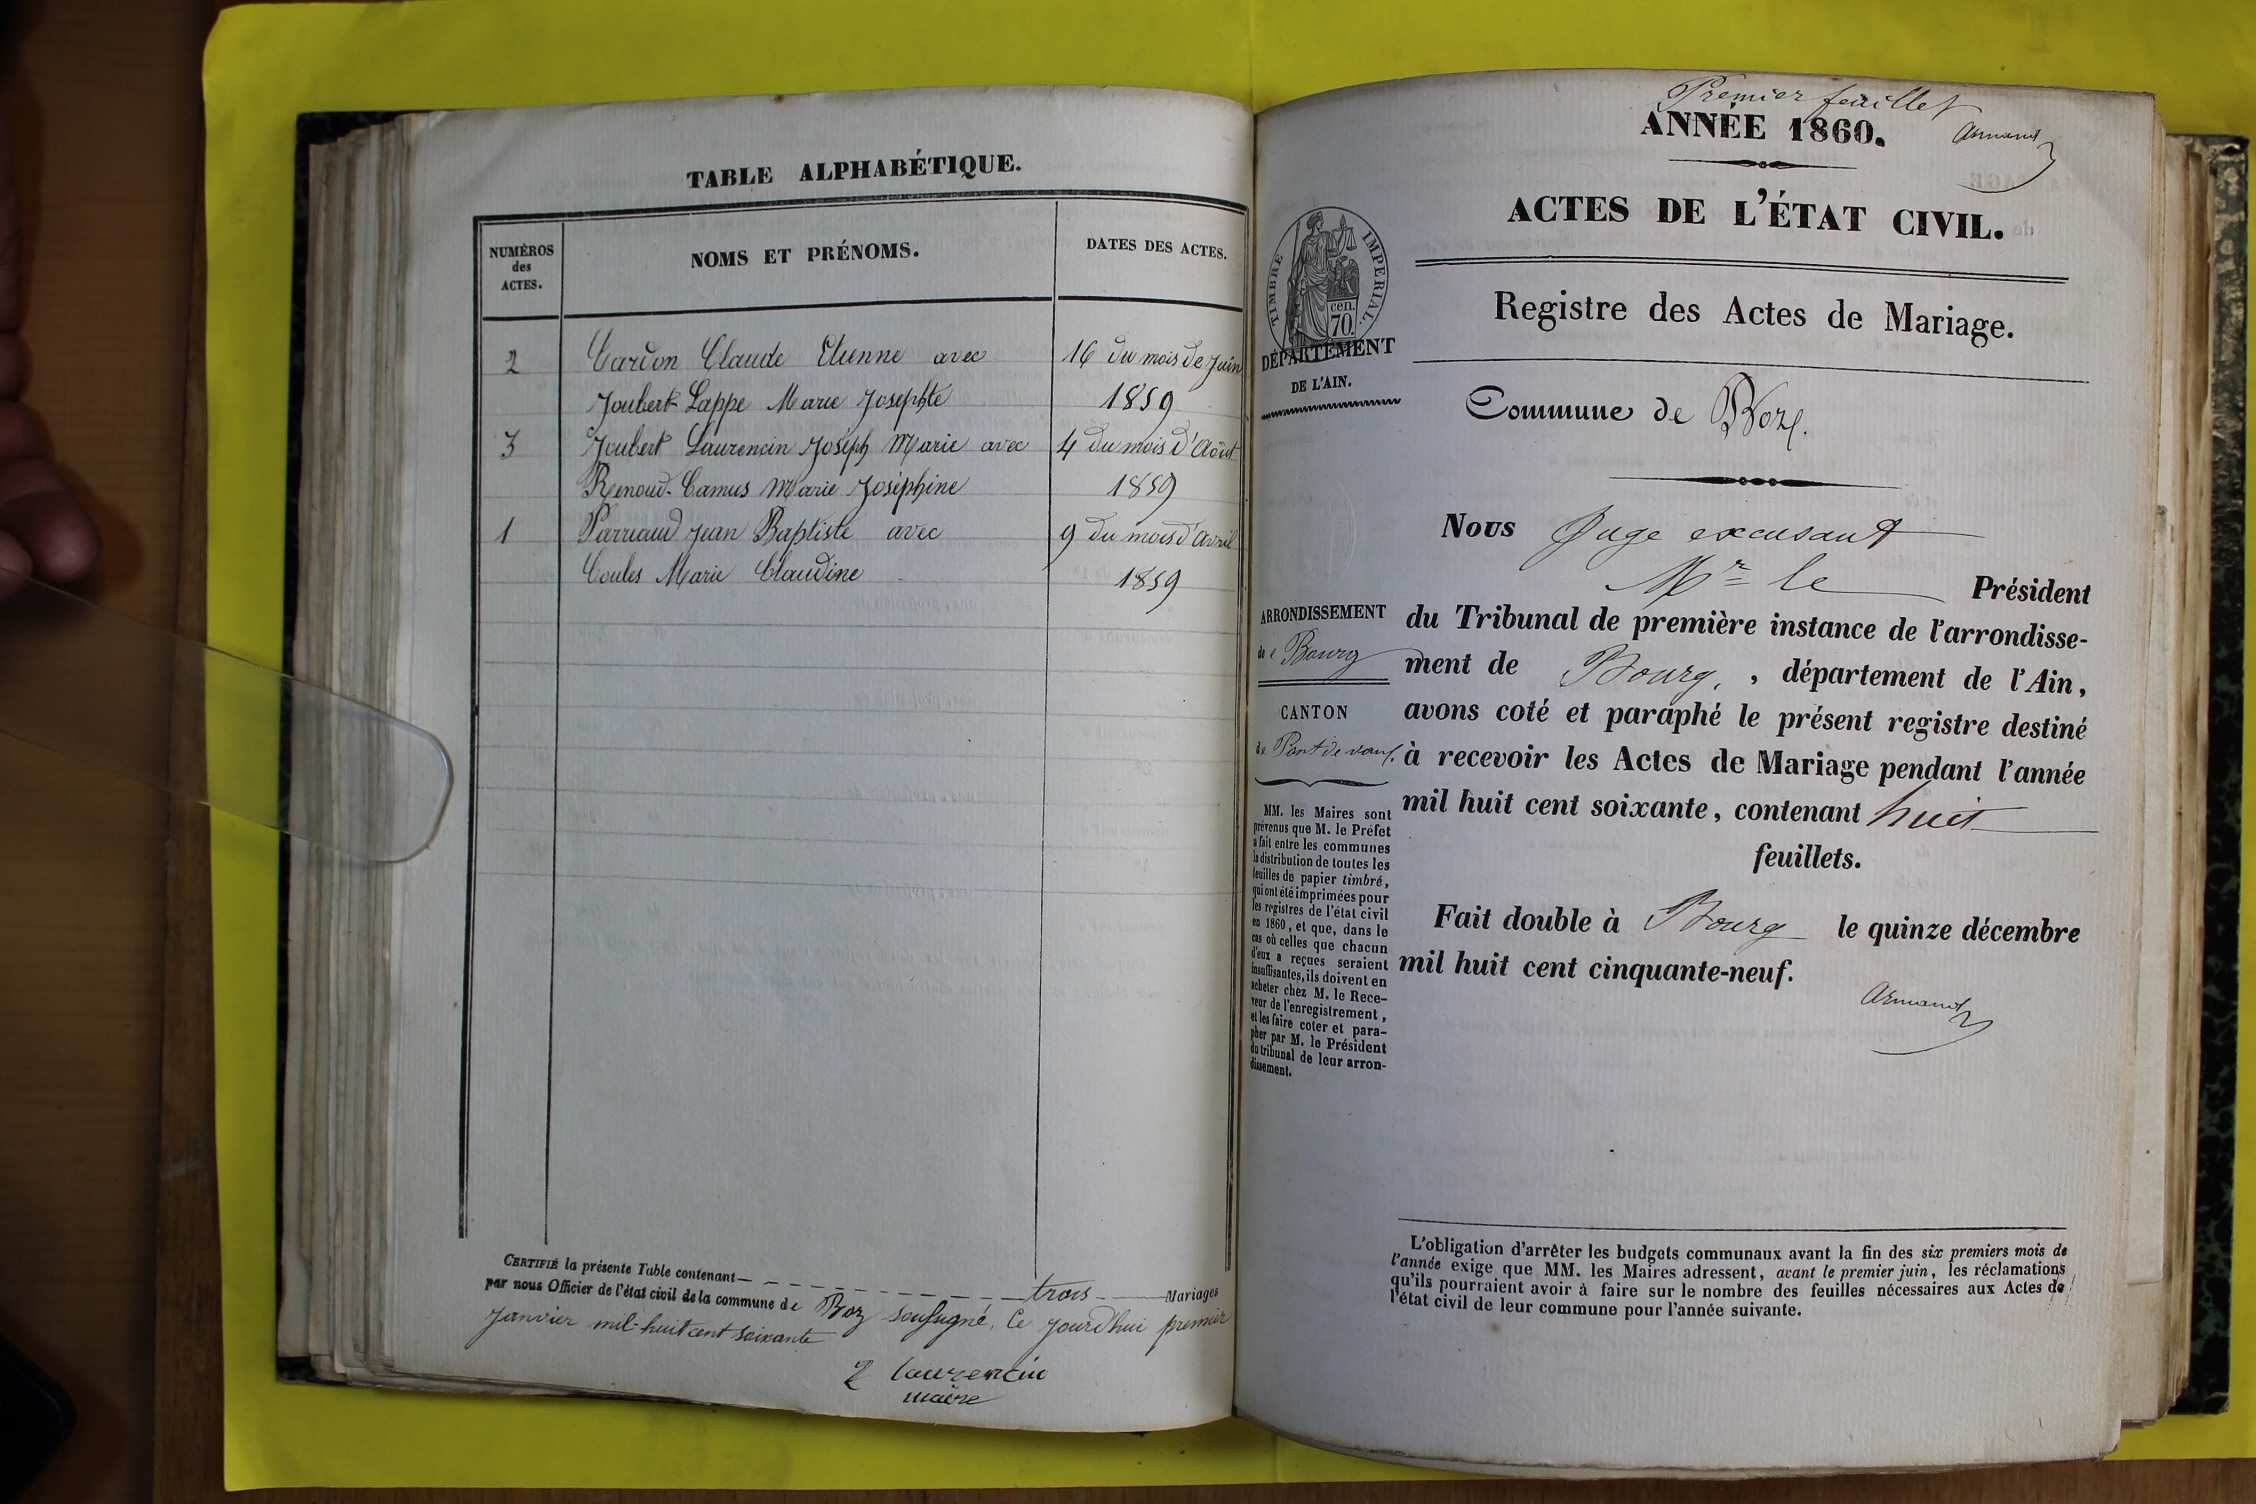 TABLE ALPHABÉTIQUE.
NUMÉROS
des
ACTES.
NOMS ET PRÉNOMS.
DATES DES ACTES.
2 Cardon Claude Etienne avec 16 du mois de Juin
Joubert-Lappe Marie Josephte 1859
3 Joubert Laurencin Joseph Marie avec 4 du mois d'Août
Renoud-Camus Marie Joséphine 1859
1 Parriaud Jean Baptiste avec 9 du mois d'Avril
Coules Marie Claudine 1859
CERTIFIÉ la présente Table contenant trois Mariages
par nous Officier de l'état civil de la commune de Boz soussigné, Ce jourd'hui premier
Janvier mil-huit cent soixante
Laurencin
maire
Premier feuillet
Armand
ANNÉE 1860.
ACTES DE L'ÉTAT CIVIL.
TIMBRE IMPERIAL.
cen.
70.
DÉPARTEMENT
DE L'AIN.
Registre des Actes de Mariage.
Commune de Boz.
Nous Juge excusant
Mr le Président
du Tribunal de première instance de l'arrondisse-
ment de Bourg, , département de l'Ain,
avons coté et paraphé le présent registre destiné
à recevoir les Actes de Mariage pendant l'année
mil huit cent soixante, contenant huit
feuillets.
Fait double à Bourg le quinze décembre
mil huit cent cinquante-neuf.
Armand
ARRONDISSEMENT
de Bourg
CANTON
de Pont de vaux.
MM. les Maires sont
prévenus que M. le Préfet
a fait entre les communes
la distribution de toutes les
feuilles de papier timbré,
qui ont été imprimées pour
les registres de l'état civil
en 1860, et que, dans le
cas où celles que chacun
d'eux a reçues seraient
insuffisantes, ils doivent en
acheter chez M. le Rece-
veur de l'enregistrement,
et les faire coter et para-
pher par M. le Président
du tribunal de leur arron-
dissement.
L'obligation d'arrêter les budgets communaux avant la fin des six premiers mois de
l'année exige que MM. les Maires adressent, avant le premier juin, les réclamations
qu'ils pourraient avoir à faire sur le nombre des feuilles nécessaires aux Actes de
l'état civil de leur commune pour l'année suivante.